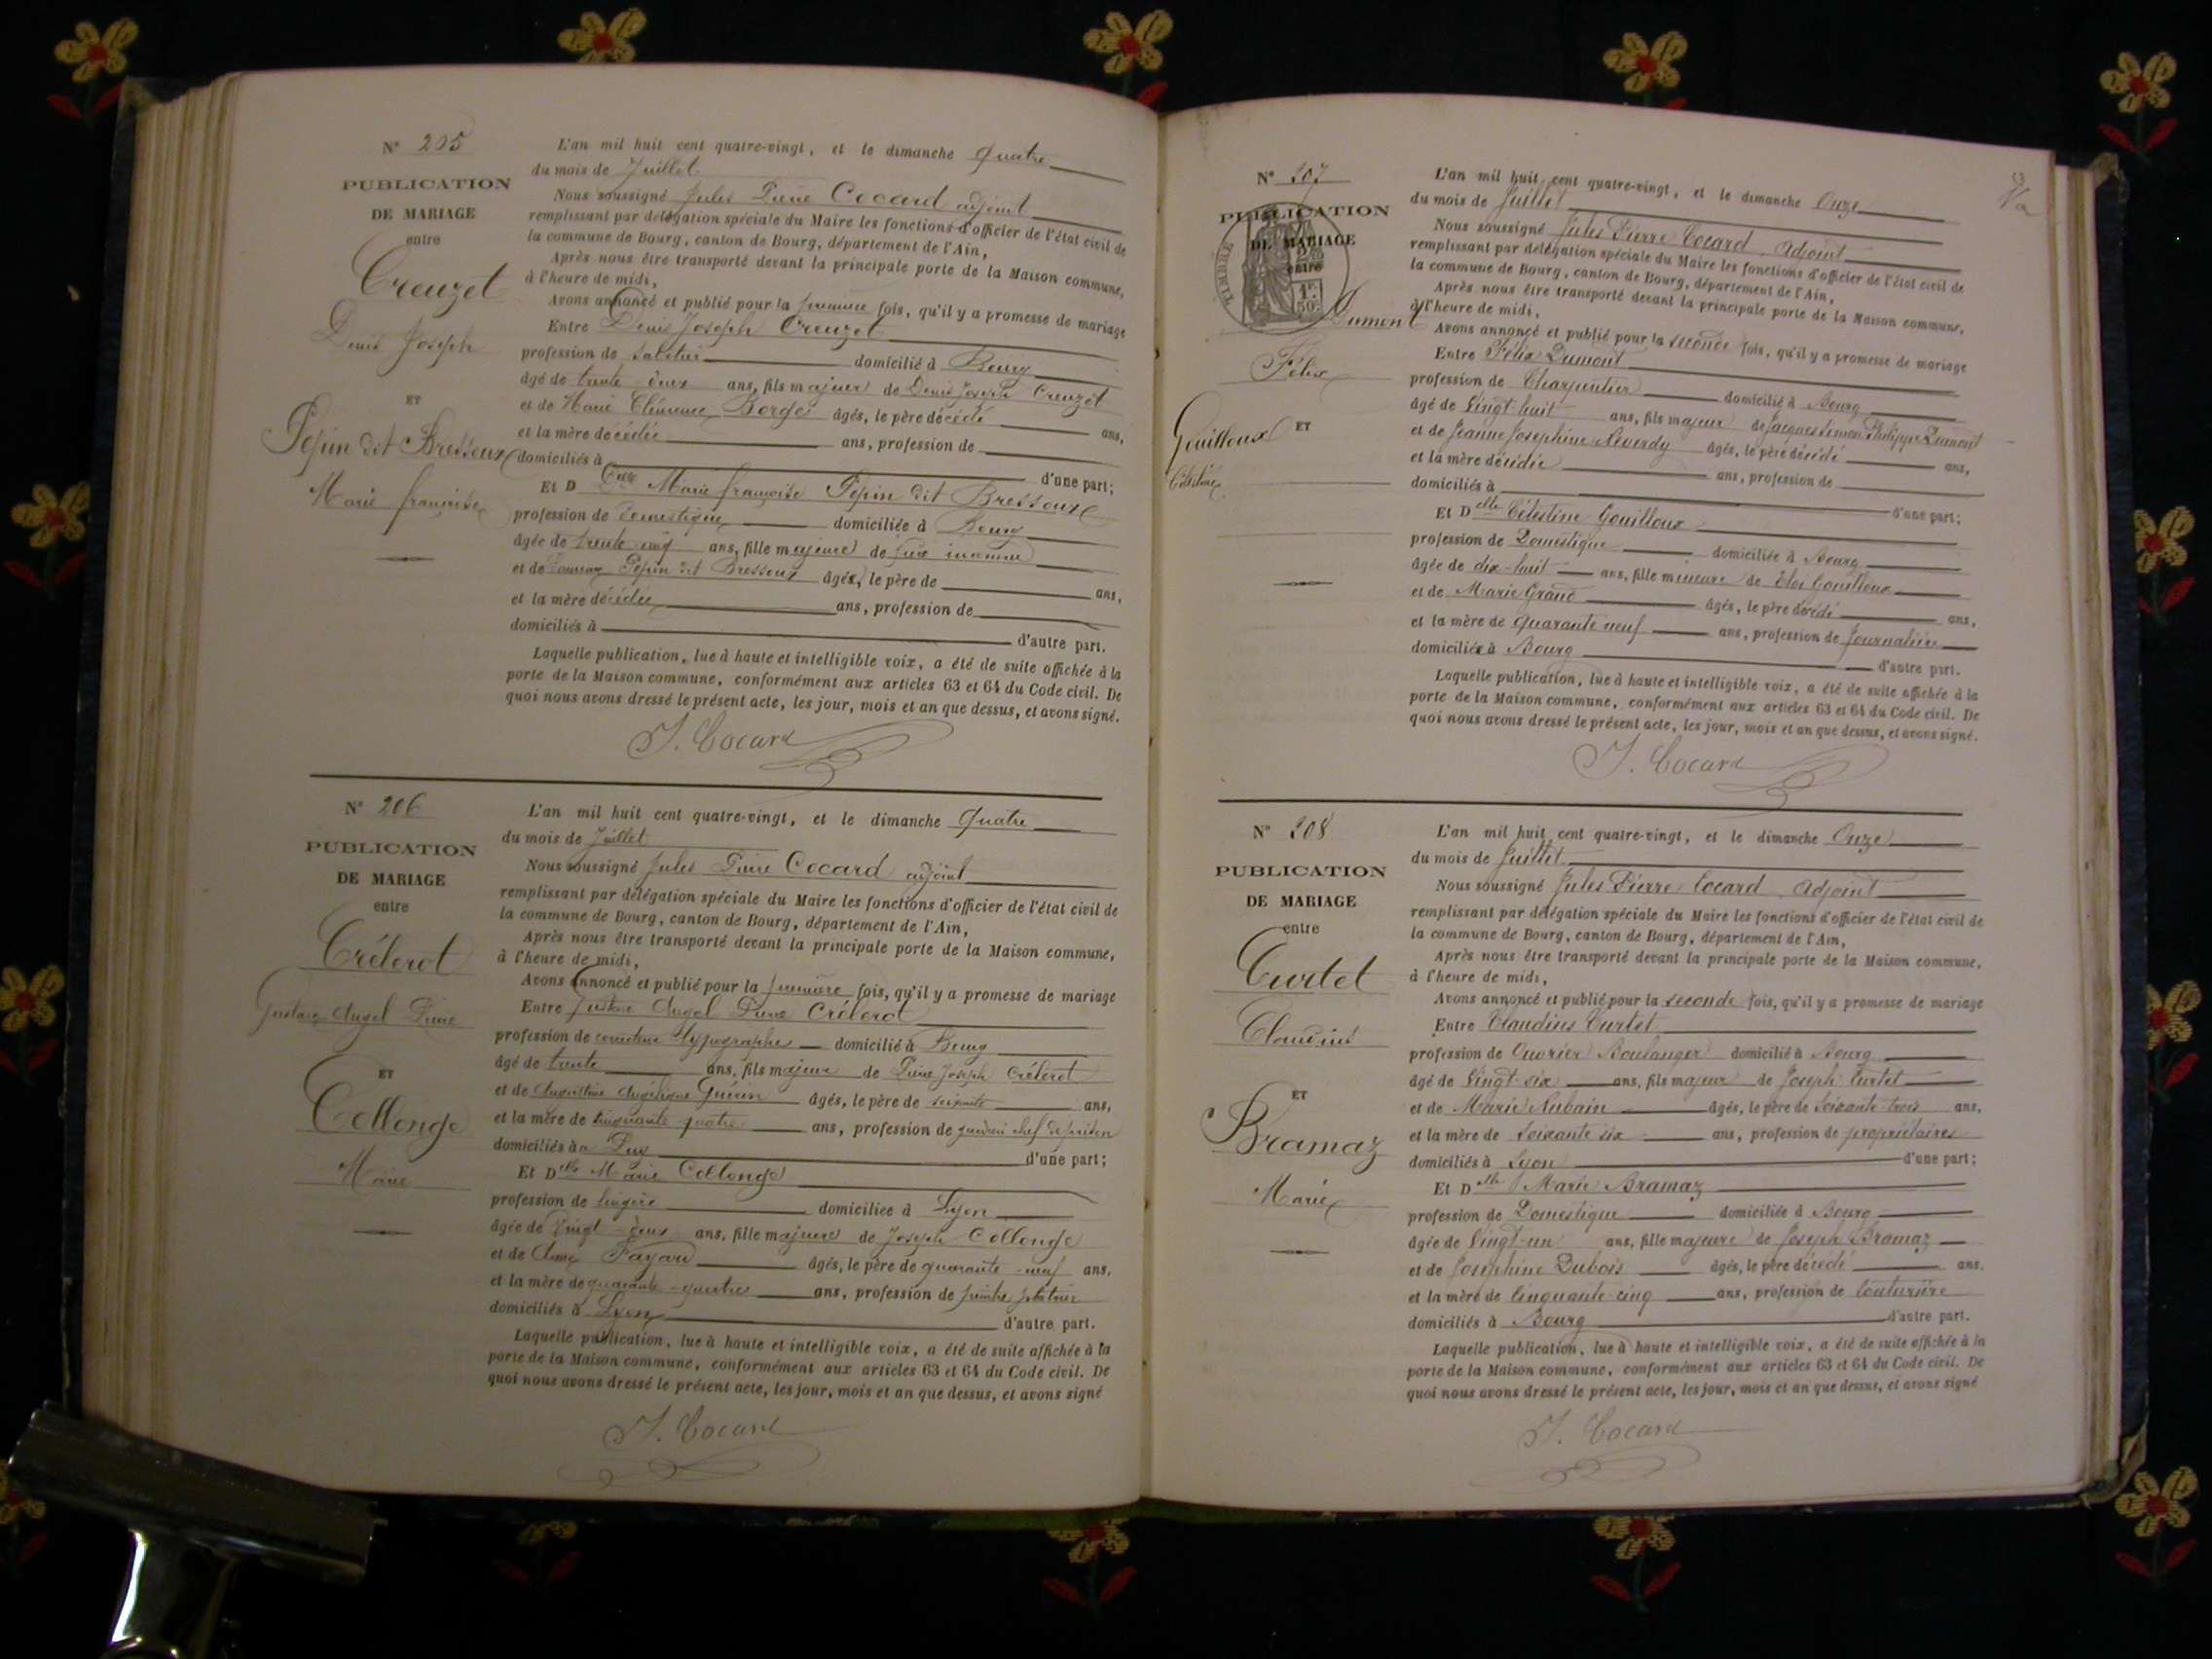 N° 205
PUBLICATION
DE MARIAGE
entre
Creuzet
Denis Joseph
ET
Pepin dit Bressoux
Marie françoise
L'an mil huit cent quatre-vingt, et le dimanche quatre
du mois de Juillet
Nous soussigné Jules Pierre Cocard adjoint
remplissant par délégation spéciale du Maire les fonctions d'officier de l'état civil de
la commune de Bourg, canton de Bourg, département de l'Ain,
Après nous être transporté devant la principale porte de la Maison commune,
à l'heure de midi,
Avons annoncé et publié pour la première fois, qu'il y a promesse de mariage
Entre Denis Joseph Creuzet
profession de domicilié à Bourg
âgé de trente deux ans, fils majeur de Denis Joseph Creuzet
et de Marie Clémence Borges âgés, le père décédé ans,
et la mère décédée ans, profession de
domiciliés à d'une part;
Et D elle Marie françoise Pepin dit Bressoux
profession de domestique domiciliée à Bourg
âgée de trente cinq ans, fille majeure de père inconnu
et de Pepin dit Bressoux âgés, le père de ans,
et la mère décédée ans, profession de
domiciliés à d'autre part.
Laquelle publication, lue à haute et intelligible voix, a été de suite affichée à la
porte de la Maison commune, conformément aux articles 63 et 64 du Code civil. De
quoi nous avons dressé le présent acte, les jour, mois et an que dessus, et avons signé.
J. Cocard
N° 206
PUBLICATION
DE MARIAGE
entre
Crélerot
Gustave Angel Pierre
ET
Collonge
Marie
L'an mil huit cent quatre-vingt, et le dimanche Quatre
du mois de Juillet
Nous soussigné Jules Pierre Cocard adjoint
remplissant par délégation spéciale du Maire les fonctions d'officier de l'état civil de
la commune de Bourg, canton de Bourg, département de l'Ain,
Après nous être transporté devant la principale porte de la Maison commune,
à l'heure de midi,
Avons annoncé et publié pour la première fois, qu'il y a promesse de mariage
Entre Gustave Angel Pierre Crélerot
profession de correcteur typographe domicilié à Bourg
âgé de trente ans, fils majeur de Pierre Joseph Crélerot
et de Augustine Angélique Guérin âgés, le père de soixante ans,
et la mère de cinquante quatre ans, profession de gardien chef de prison
domiciliés à d'une part;
Et D elle Marie Collonge
profession de lingère domiciliée à Lyon
âgée de vingt deux ans, fille majeure de Joseph Collonge
et de Anne Fayard âgés, le père de quarante neuf ans,
et la mère de quarante quatre ans, profession de peintre plâtrier
domiciliés à Lyon d'autre part.
Laquelle publication, lue à haute et intelligible voix, a été de suite affichée à la
porte de la Maison commune, conformément aux articles 63 et 64 du Code civil. De
quoi nous avons dressé le présent acte, les jour, mois et an que dessus, et avons signé
J. Cocard
N° 207
PUBLICATION
DE MARIAGE
entre
TIMBRE
Dumont
Félix
ET
Guilloux
Célestine
L'an mil huit cent quatre-vingt, et le dimanche Onze
du mois de Juillet
Nous soussigné Jules Pierre Cocard, adjoint
remplissant par délégation spéciale du Maire les fonctions d'officier de l'état civil de
la commune de Bourg, canton de Bourg, département de l'Ain,
Après nous être transporté devant la principale porte de la Maison commune,
à l'heure de midi,
Avons annoncé et publié pour la seconde fois, qu'il y a promesse de mariage
Entre Félix Dumont
profession de Charpentier domicilié à Bourg
âgé de Vingt huit ans, fils majeur de Jacques Simon Philippe Dumont
et de Jeanne Josephine Reverdy âgés, le père décédé ans,
et la mère décédée ans, profession de
domiciliés à d'une part;
Et D elle Célestine Gouilloux
profession de Domestique domiciliée à Bourg
âgée de dix-huit ans, fille mineure de Eloi Gouilloux
et de Marie Grand âgés, le père décédé ans,
et la mère de quarante neuf ans, profession de Journalière
domiciliée à Bourg d'autre part.
Laquelle publication, lue à haute et intelligible voix, a été de suite affichée à la
porte de la Maison commune, conformément aux articles 63 et 64 du Code civil. De
quoi nous avons dressé le présent acte, les jour, mois et an que dessus, et avons signé.
J. Cocard
N° 208
PUBLICATION
DE MARIAGE
entre
Curtet
Claudius
ET
Bramaz
Marie
L'an mil huit cent quatre-vingt, et le dimanche Onze
du mois de Juillet
Nous soussigné Jules Pierre Cocard, adjoint
remplissant par délégation spéciale du Maire les fonctions d'officier de l'état civil de
la commune de Bourg, canton de Bourg, département de l'Ain,
Après nous être transporté devant la principale porte de la Maison commune,
à l'heure de midi,
Avons annoncé et publié pour la seconde fois, qu'il y a promesse de mariage
Entre Claudius Curtet
profession de Ouvrier Boulanger domicilié à Bourg
âgé de Vingt-six ans, fils majeur de Joseph Curtet
et de Marie Aubain âgés, le père de Soixante-trois ans,
et la mère de Soixante six ans, profession de propriétaires
domiciliés à Lyon d'une part;
Et D elle Marie Bramaz
profession de Domestique domiciliée à Bourg
âgée de Vingt-un ans, fille majeure de Joseph Bramaz
et de Joséphine Dubois âgés, le père décédé ans,
et la mère de Cinquante-cinq ans, profession de Couturière
domiciliés à Bourg d'autre part.
Laquelle publication, lue à haute et intelligible voix, a été de suite affichée à la
porte de la Maison commune, conformément aux articles 63 et 64 du Code civil. De
quoi nous avons dressé le présent acte, les jour, mois et an que dessus, et avons signé
J. Cocard